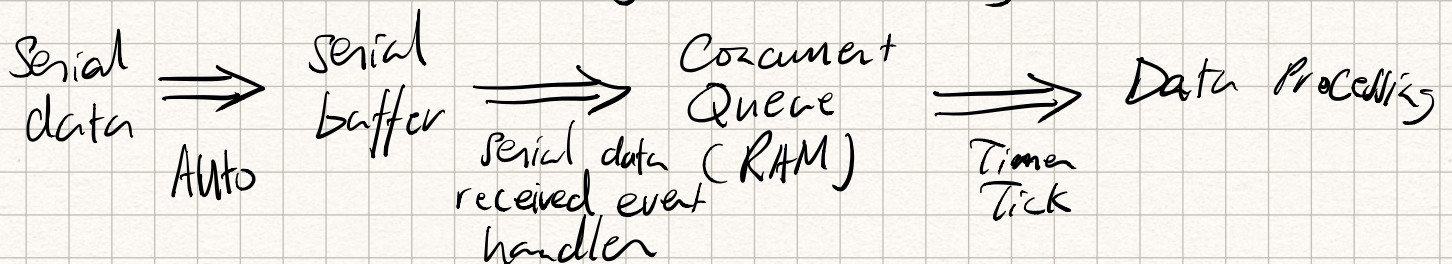 Serial
data
Auto
Serial
buffer
Serial data
received event
handler
Concurrent
Queue
(RAM)
Timer
Tick
Data Processing